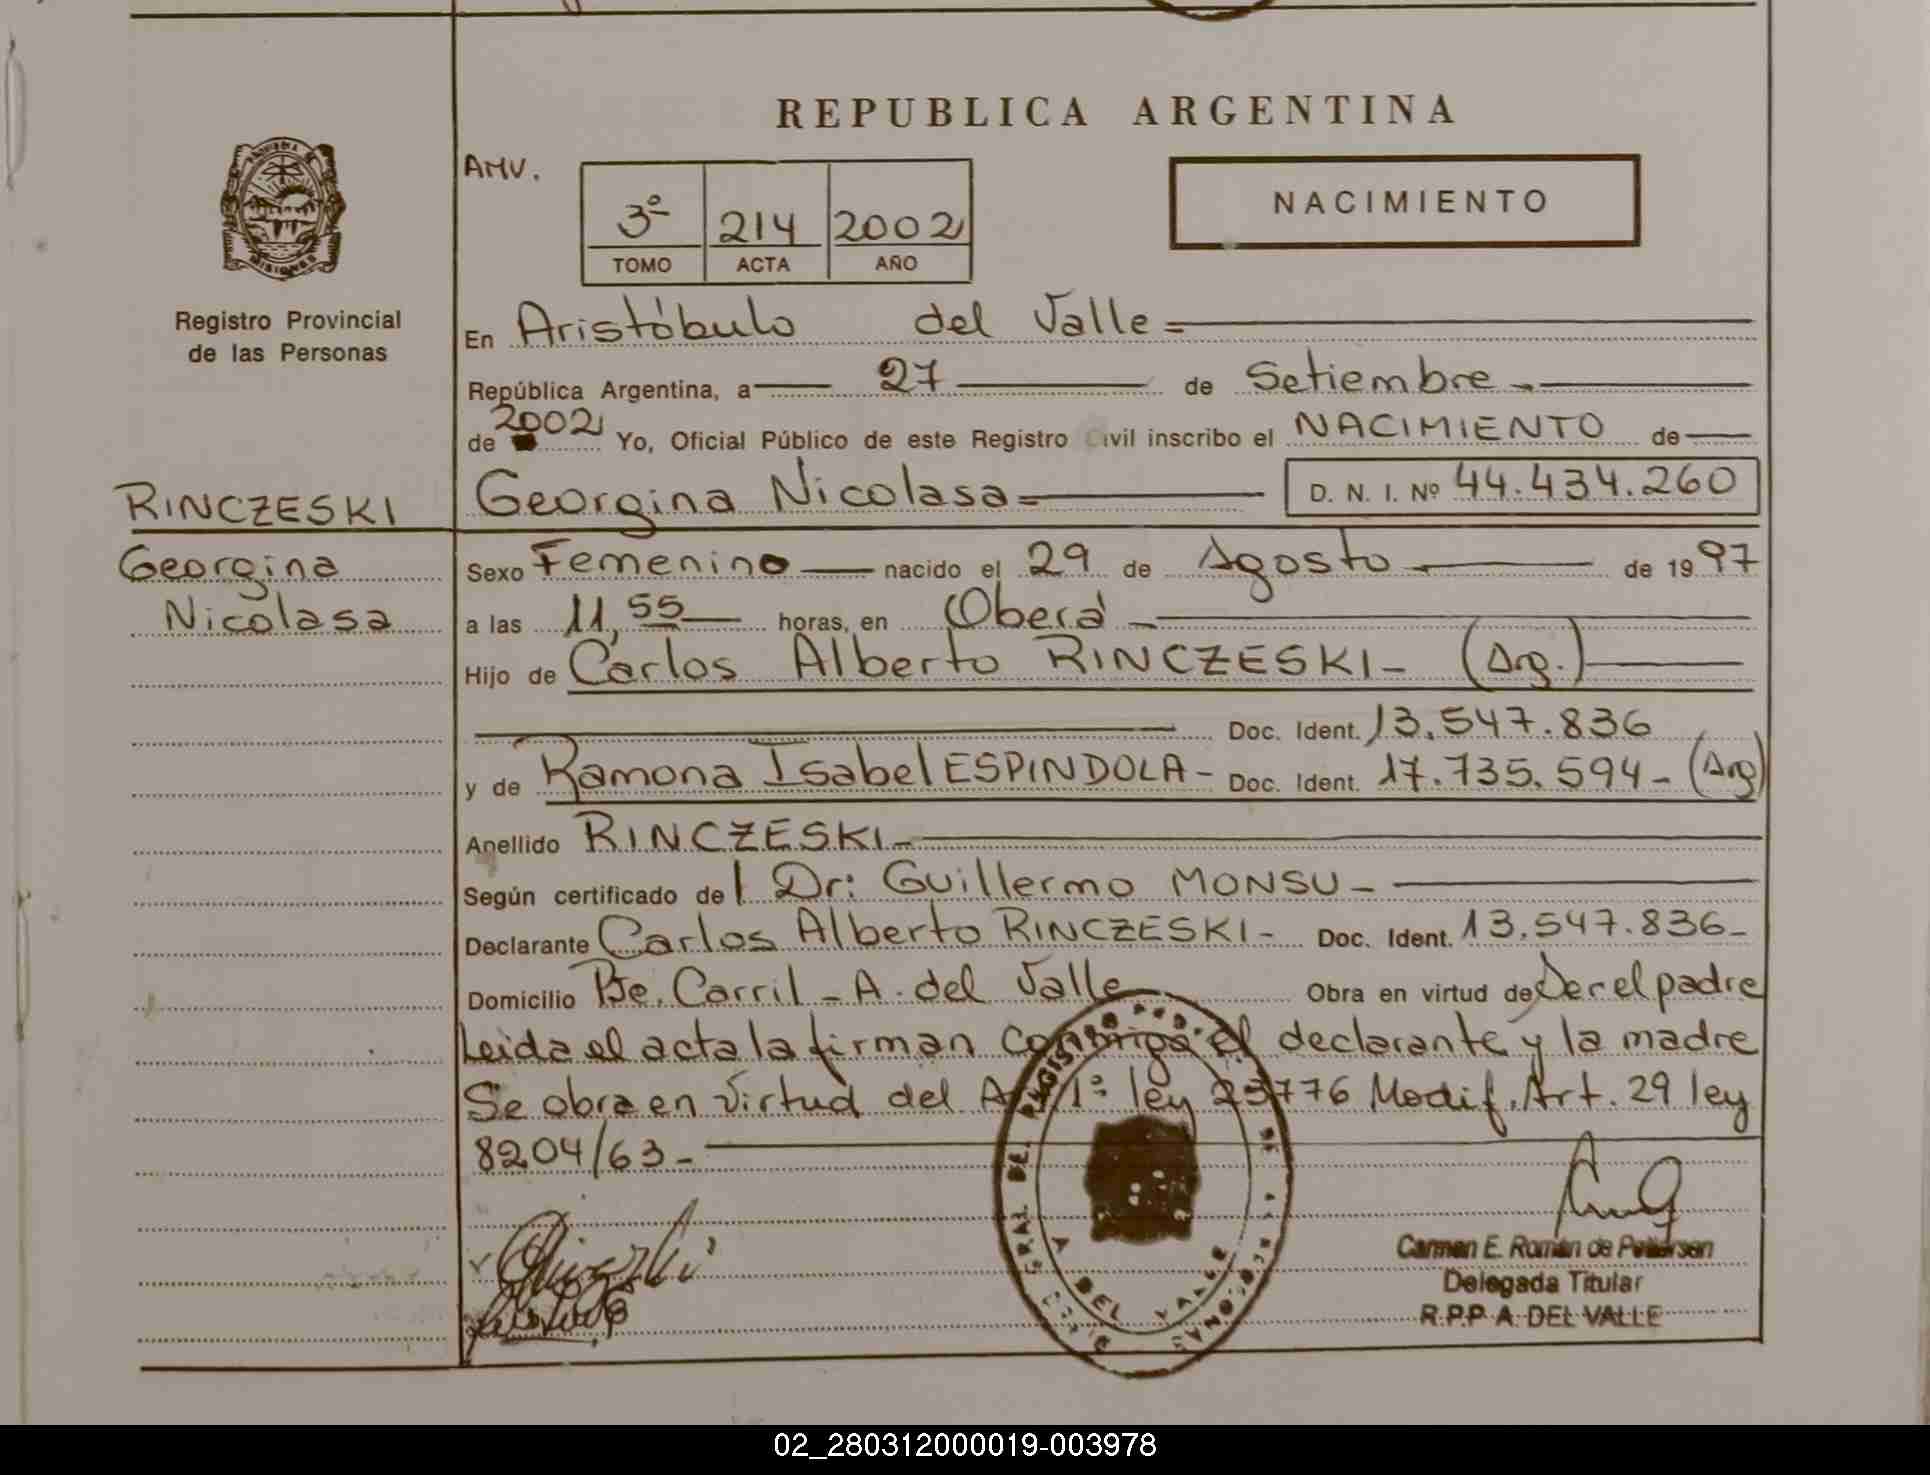 REPUBLICA ARGENTINA
AMV.
3º 214 2002
TOMO ACTA AÑO
NACIMIENTO
PROVINCIA DE
MISIONES
Registro Provincial
de las Personas
En Aristóbulo del Valle=
República Argentina, a 27 de Setiembre
de 2002 Yo, Oficial Público de este Registro Civil inscribo el NACIMIENTO de
RINCZESKI
Georgina Nicolasa=
D. N. I. Nº 44.434.260
Georgina
Nicolasa
Sexo Femenino nacido el 29 de Agosto de 1997
a las 11,55 horas, en Oberá
Hijo de Carlos Alberto RINCZESKI- (Arg.)
Doc. Ident. 13.547.836
y de Ramona Isabel ESPINDOLA- Doc. Ident. 17.735.594- (Arg)
Apellido RINCZESKI-
Según certificado del Dr: Guillermo MONSU-
Declarante Carlos Alberto RINCZESKI- Doc. Ident. 13.547.836-
Domicilio Pje. Carril - A. del Valle Obra en virtud de Ser el padre
Leida el acta la firman conmigo el declarante y la madre
Se obra en virtud del Art 1º ley 23776 Modif. Art. 29 ley
8204/63-
GRAL DEL REGISTRO
A DEL VALLE
Carmen E. Román de Pettersen
Delegada Titular
R.P.P A. DEL VALLE
02_280312000019-003978